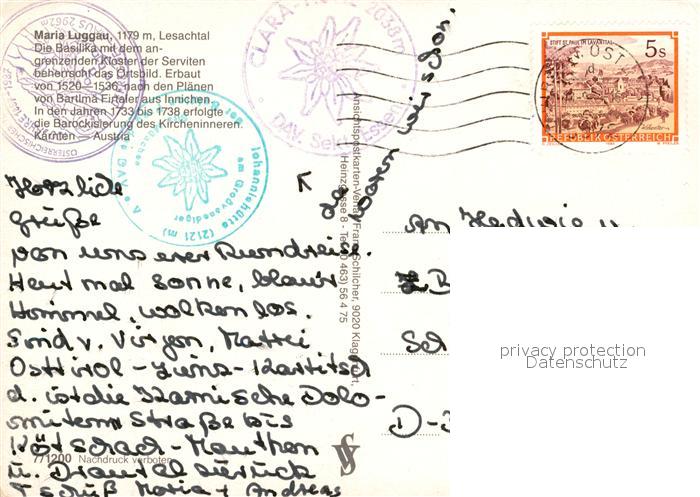 Maria Luggau, 1179 m, Lesachtal
Die Basilika mit dem an-
grenzenden Kloster der Serviten
beherrscht das Ortsbild. Erbaut
von 1520 – 1536, nach den Plänen
von Bartlmä Firtaler aus Innichen.
In den Jahren 1733 bis 1738 erfolgte
die Barockisierung des Kircheninneren.
Kärnten – Austria
2038 m
DAV Sektion Essen
Johannishütte (2121 m)
am Großvenediger
STIFT ST. PAUL IM LAVANTTAL
5s
REPUBLIK ÖSTERREICH
da waren wir schon.
Ansichtspostkarten-Verlag Franz Schilcher, 9020 Klagenfurt,
Heinzgasse 8 - Tel. (0 463) 56 4 75
Herzliche
Grüße
von uns erer Rundreise.
Heut mal Sonne, blauer
Himmel, wolkenlos.
Sind v. Virgen, Matrei
Osttirol - Lienz - Kartitsch
d. ist die Karnische Dolo-
miten Straße bis
Kötschach - Mauthen
u. Drautal zurück
Tschüß Maria + Andreas
771200 Nachdruck verboten
An Hedwig u.
Sch
D-
privacy protection
Datenschutz